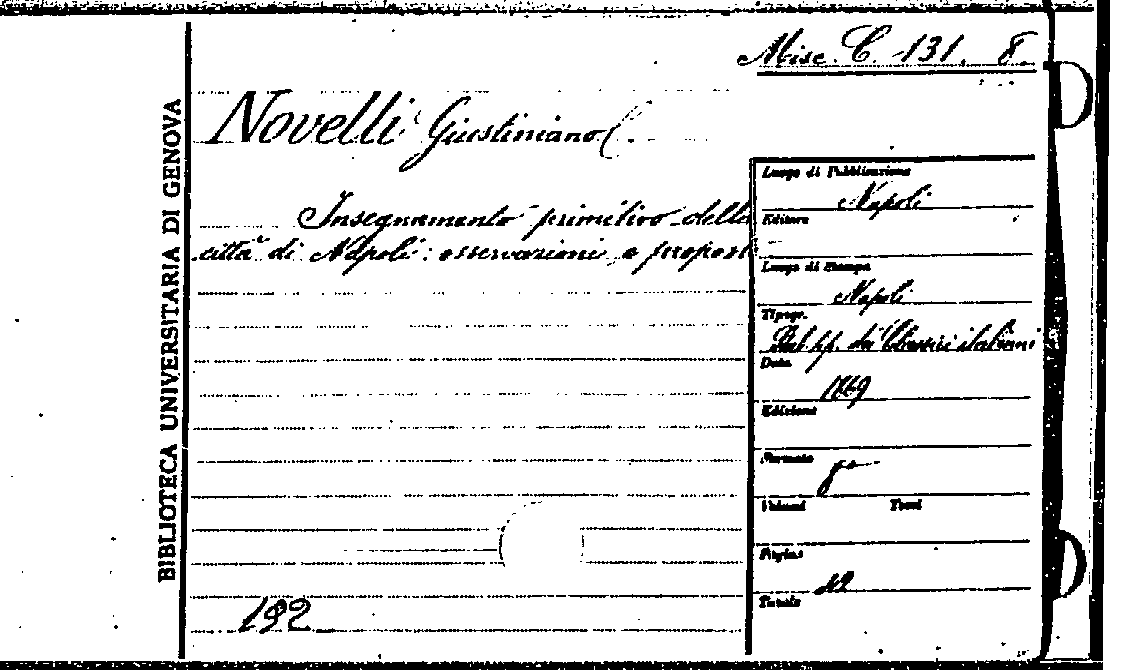 Misc. C. 131. 8.
BIBLIOTECA UNIVERSITARIA DI GENOVA
Novelli Giustiniano
Insegnamento primitivo della
città di Napoli: osservazioni e propost
Luogo di Pubblicazione
Napoli
Editore
Luogo di Stampa
Napoli
Tipogr.
Stab. tip. dei Classici italiani
Data
1869
Edizione
Formato
8°
Volumi Tomi
Pagine
42
Tavole
192